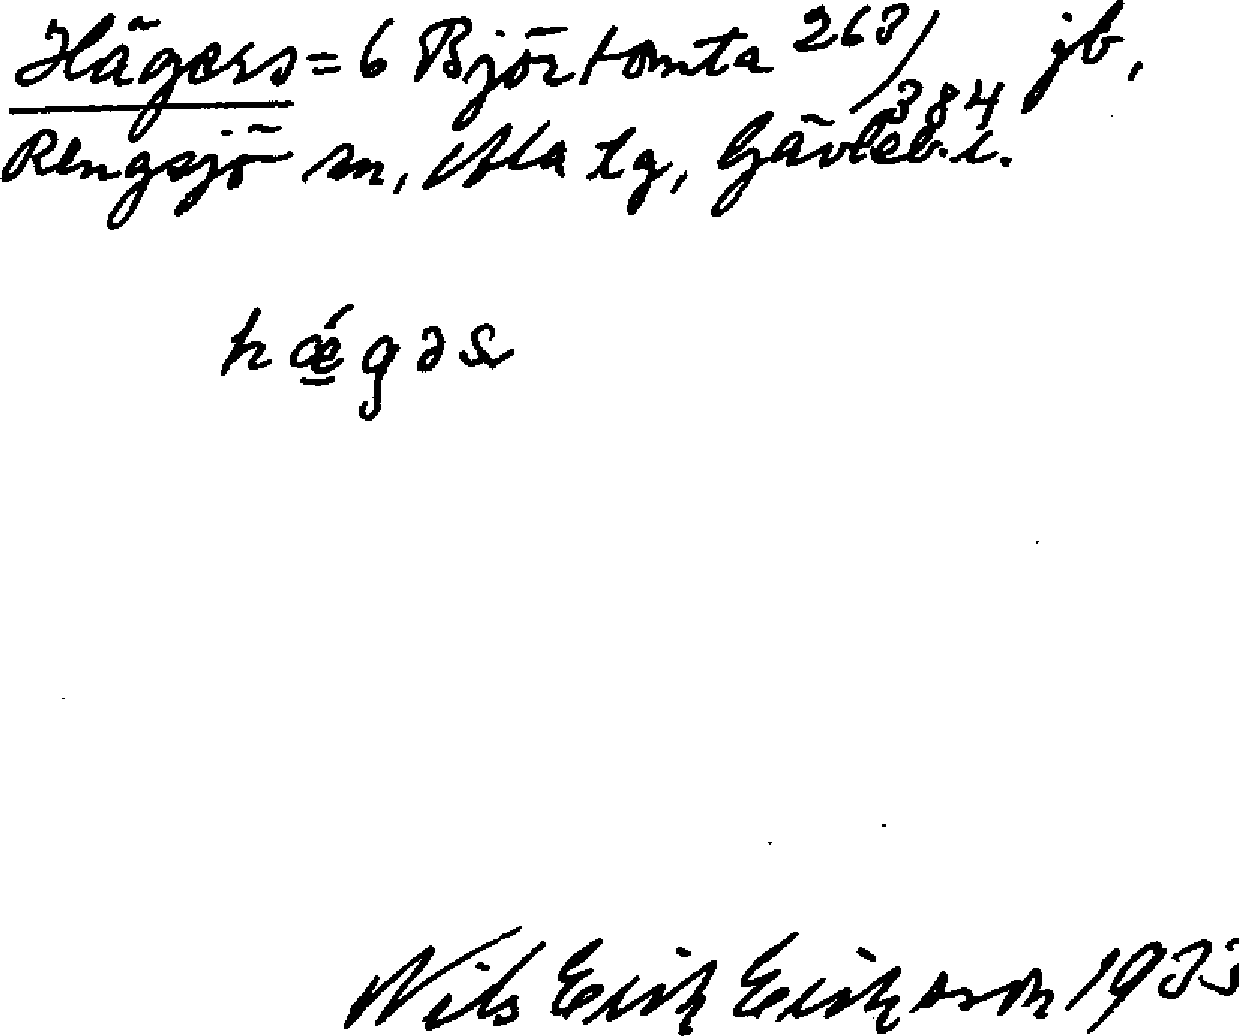 Hägers = 6 Björtomta 263/384 jb,
Rengsjö sn, Ala tg, Gävleb. l.
hǽ̱gəs
Nils Erik Eriksson 1933